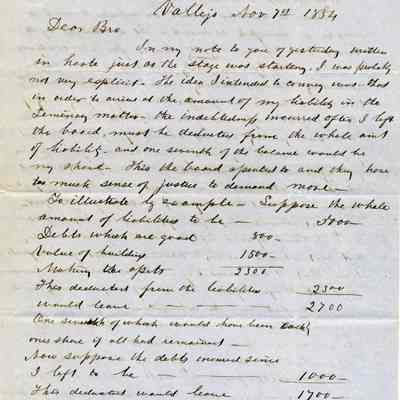 Vallejo Nov 7th 1854
Dear Bro.
In my note to you of yesterday written
in haste just as the stage was starting, I was probably
not very explicit - The idea I intended to convey was that
in order to arrive at the amount of my liability in the
Seminary matter - the indebtedness incurred after I left
the board, must be deducted from the whole amt
of liability - and one seventh of the balance would be
my share - This the board assented to and they have
too much sense of justice to demand more -
To illustrate by example - Suppose the whole
amount of liabilities to be - 5000 -
Debts which are good 800 -
Value of building 1500 -
Making the assets 2300
This deducted from the liabilities 2300
would leave 2700
One seventh of which would have been each's
one share if all had remained -
Now suppose the debts incurred since
I left to be 1000 -
This deducted would leave 1700 -